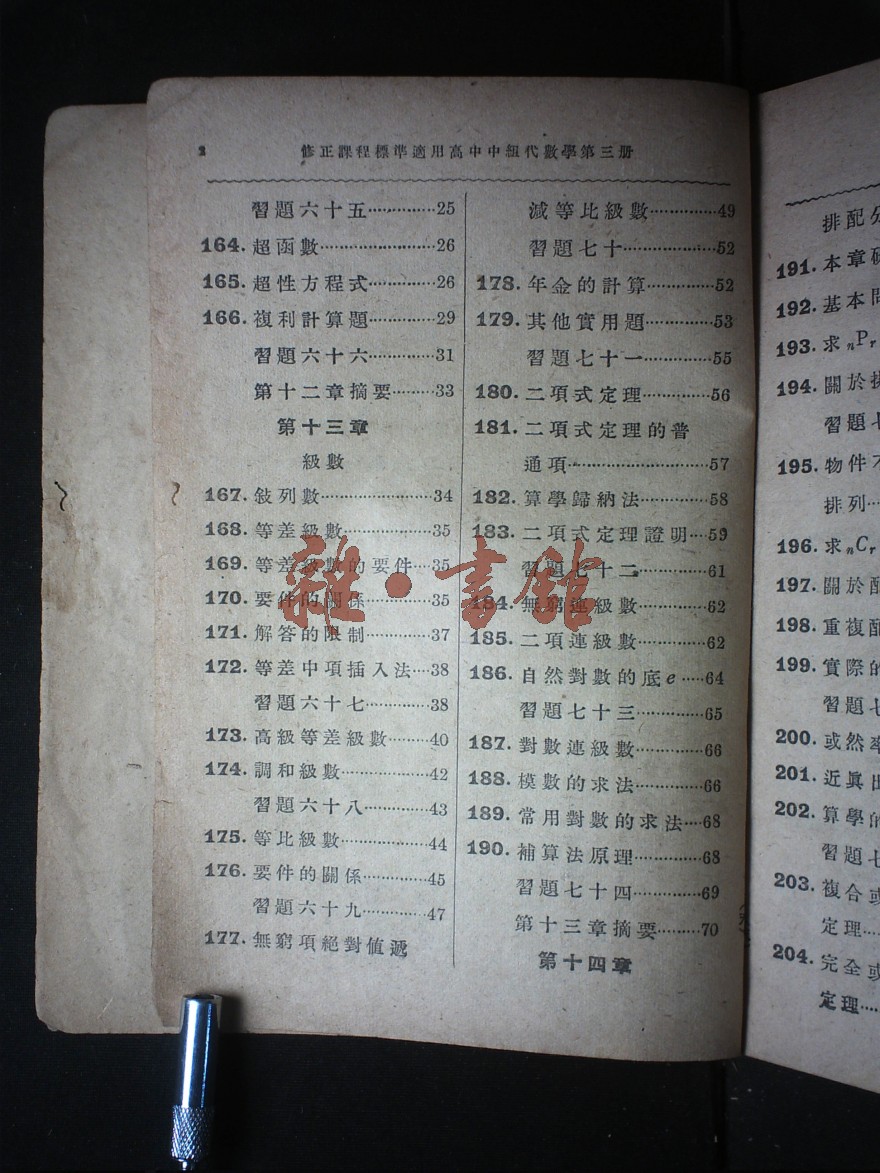 2
修正課程標準適用高中中組代數學第三册
習題六十五…………25
164.超函數…………………26
165.超性方程式……………26
166.複利計算題……………29
習題六十六……………31
第十二章摘要………33
第十三章
級數
167.敍列數…………………34
168.等差級數………………35
169.等差級數的要件…35
170.要件的關係……………35
171.解答的限制……………37
172.等差中項插入法…38
習題六十七……………38
173.高級等差級數………40
174.調和級數………………42
習題六十八……………43
175.等比級數………………44
176.要件的關係……………45
習題六十九……………47
177.無窮項絕對値遞
減等比級數……………49
習題七十………………52
178.年金的計算……………52
179.其他實用題……………53
習題七十一……………55
180.二項式定理……………56
181.二項式定理的普
通項……………………57
182.算學歸納法……………58
183.二項式定理證明…59
習題七十二……………61
184.無窮連級數……………62
185.二項連級數……………62
186.自然對數的底e……64
習題七十三……………65
187.對數連級數……………66
188.模數的求法……………66
189.常用對數的求法……68
190.補算法原理……………68
習題七十四……………69
第十三章摘要………70
第十四章
排配分
191.本章
192.基本問
193.求nPr
194.關於排
習題七
195.物件不
排列…
196.求nCr
197.關於配
198.重複配
199.實際的
習題七
200.或然率
201.近眞
202.算學的
習題七
203.複合或
定理……
204.完全或
定理……
雜·書館